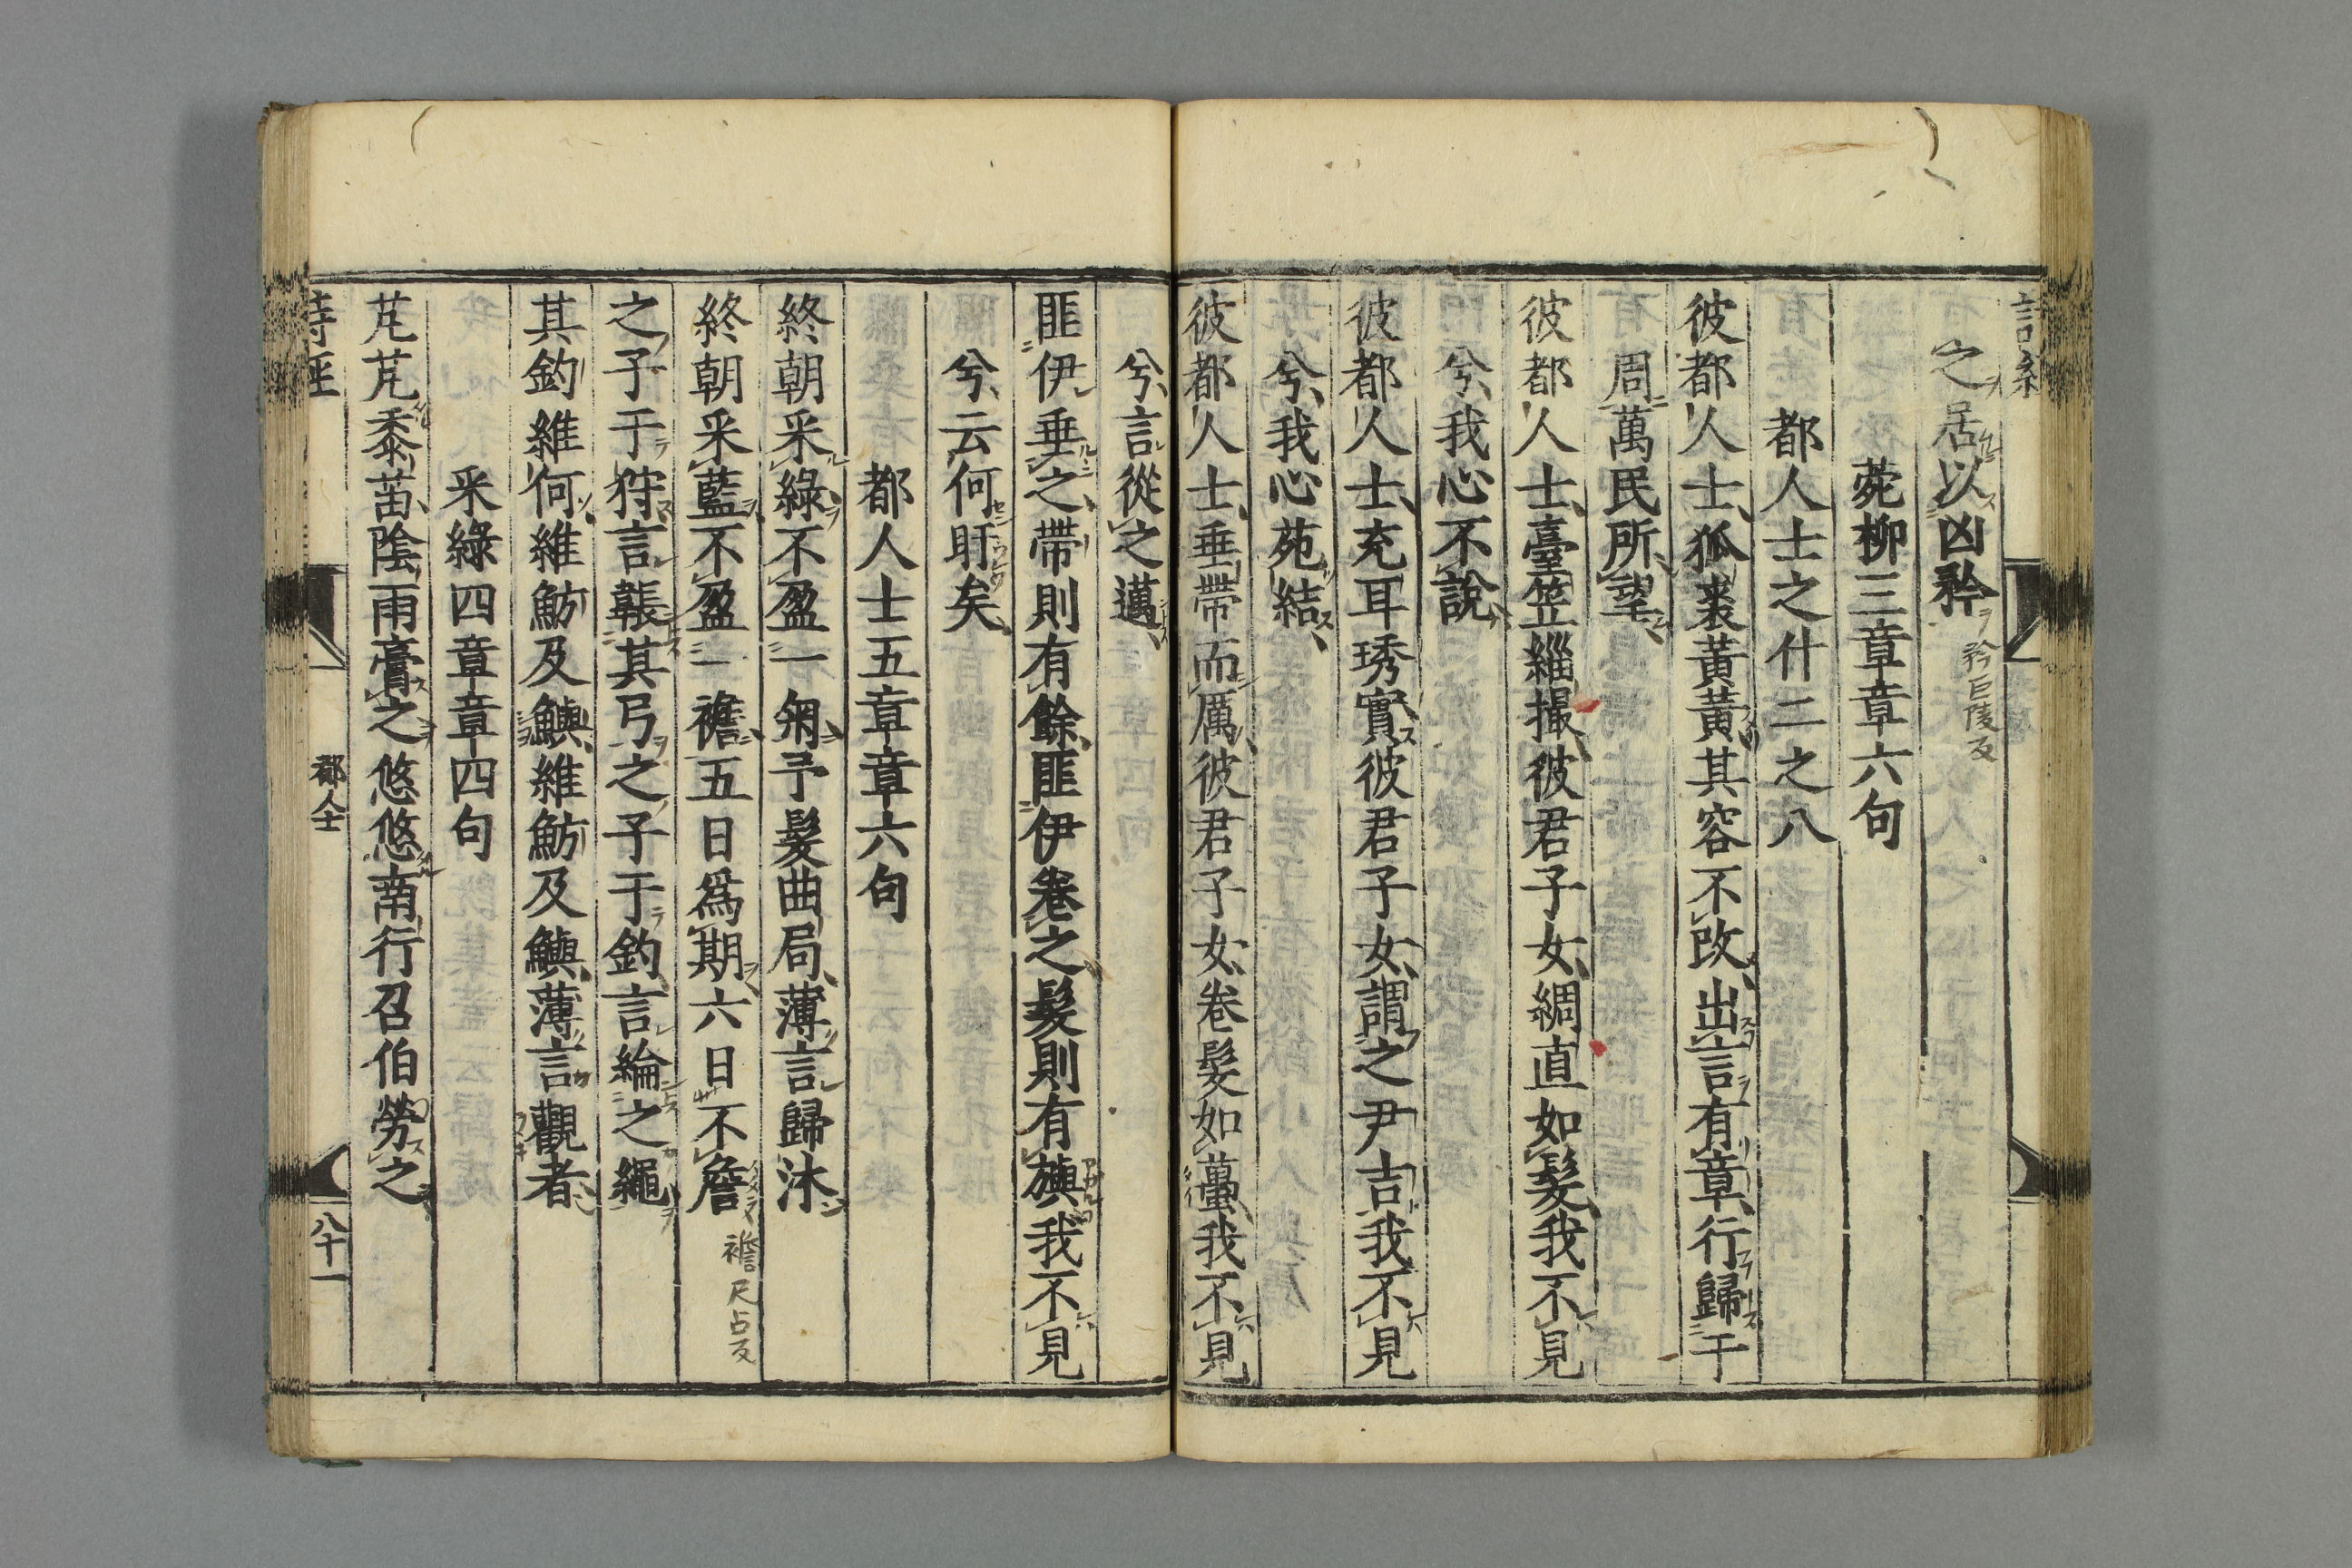 之居以凶矜 矜巨陵反
菀柳三章章六句
都人士之什二之八
彼都人士狐裘黃黃其容不改出言有章行歸于
周萬民所望
彼都人士臺笠緇撮彼君子女綢直如髮我不見
兮我心不說
彼都人士充耳琇實彼君子女謂之尹吉我不見
兮我心苑結
彼都人士垂帶而厲彼君子女卷髮如蠆我不見
兮言從之邁
匪伊垂之帶則有餘匪伊卷之髮則有旟我不見
兮云何盱矣
都人士五章章六句
終朝采綠不盈一匊予髮曲局薄言歸沐
終朝采藍不盈一襜五日爲期六日不詹 襜尺占反
之子于狩言韔其弓之子于釣言綸之繩
其釣維何維魴及鱮維魴及鱮薄言觀者
采綠四章章四句
芃芃黍苗陰雨膏之悠悠南行召伯勞之
詩經 都人士 八十一